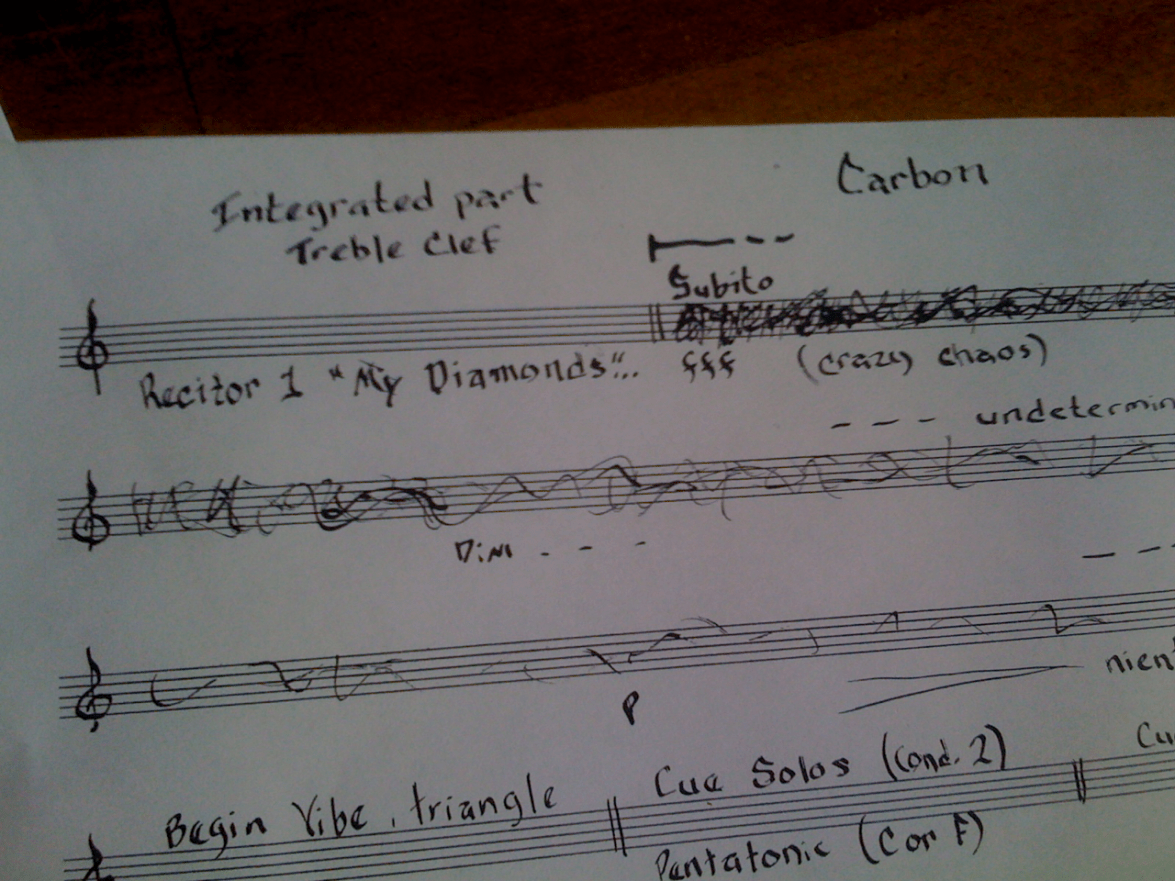 Integrated part
Treble Clef
Carbon
Subito
Recitor 1 "My Diamonds"...
fff (crazy chaos)
undetermin
Dim
P
nient
Begin Vibe, triangle
Cue Solos (Cond. 2)
Cu
Pentatonic (C or F)